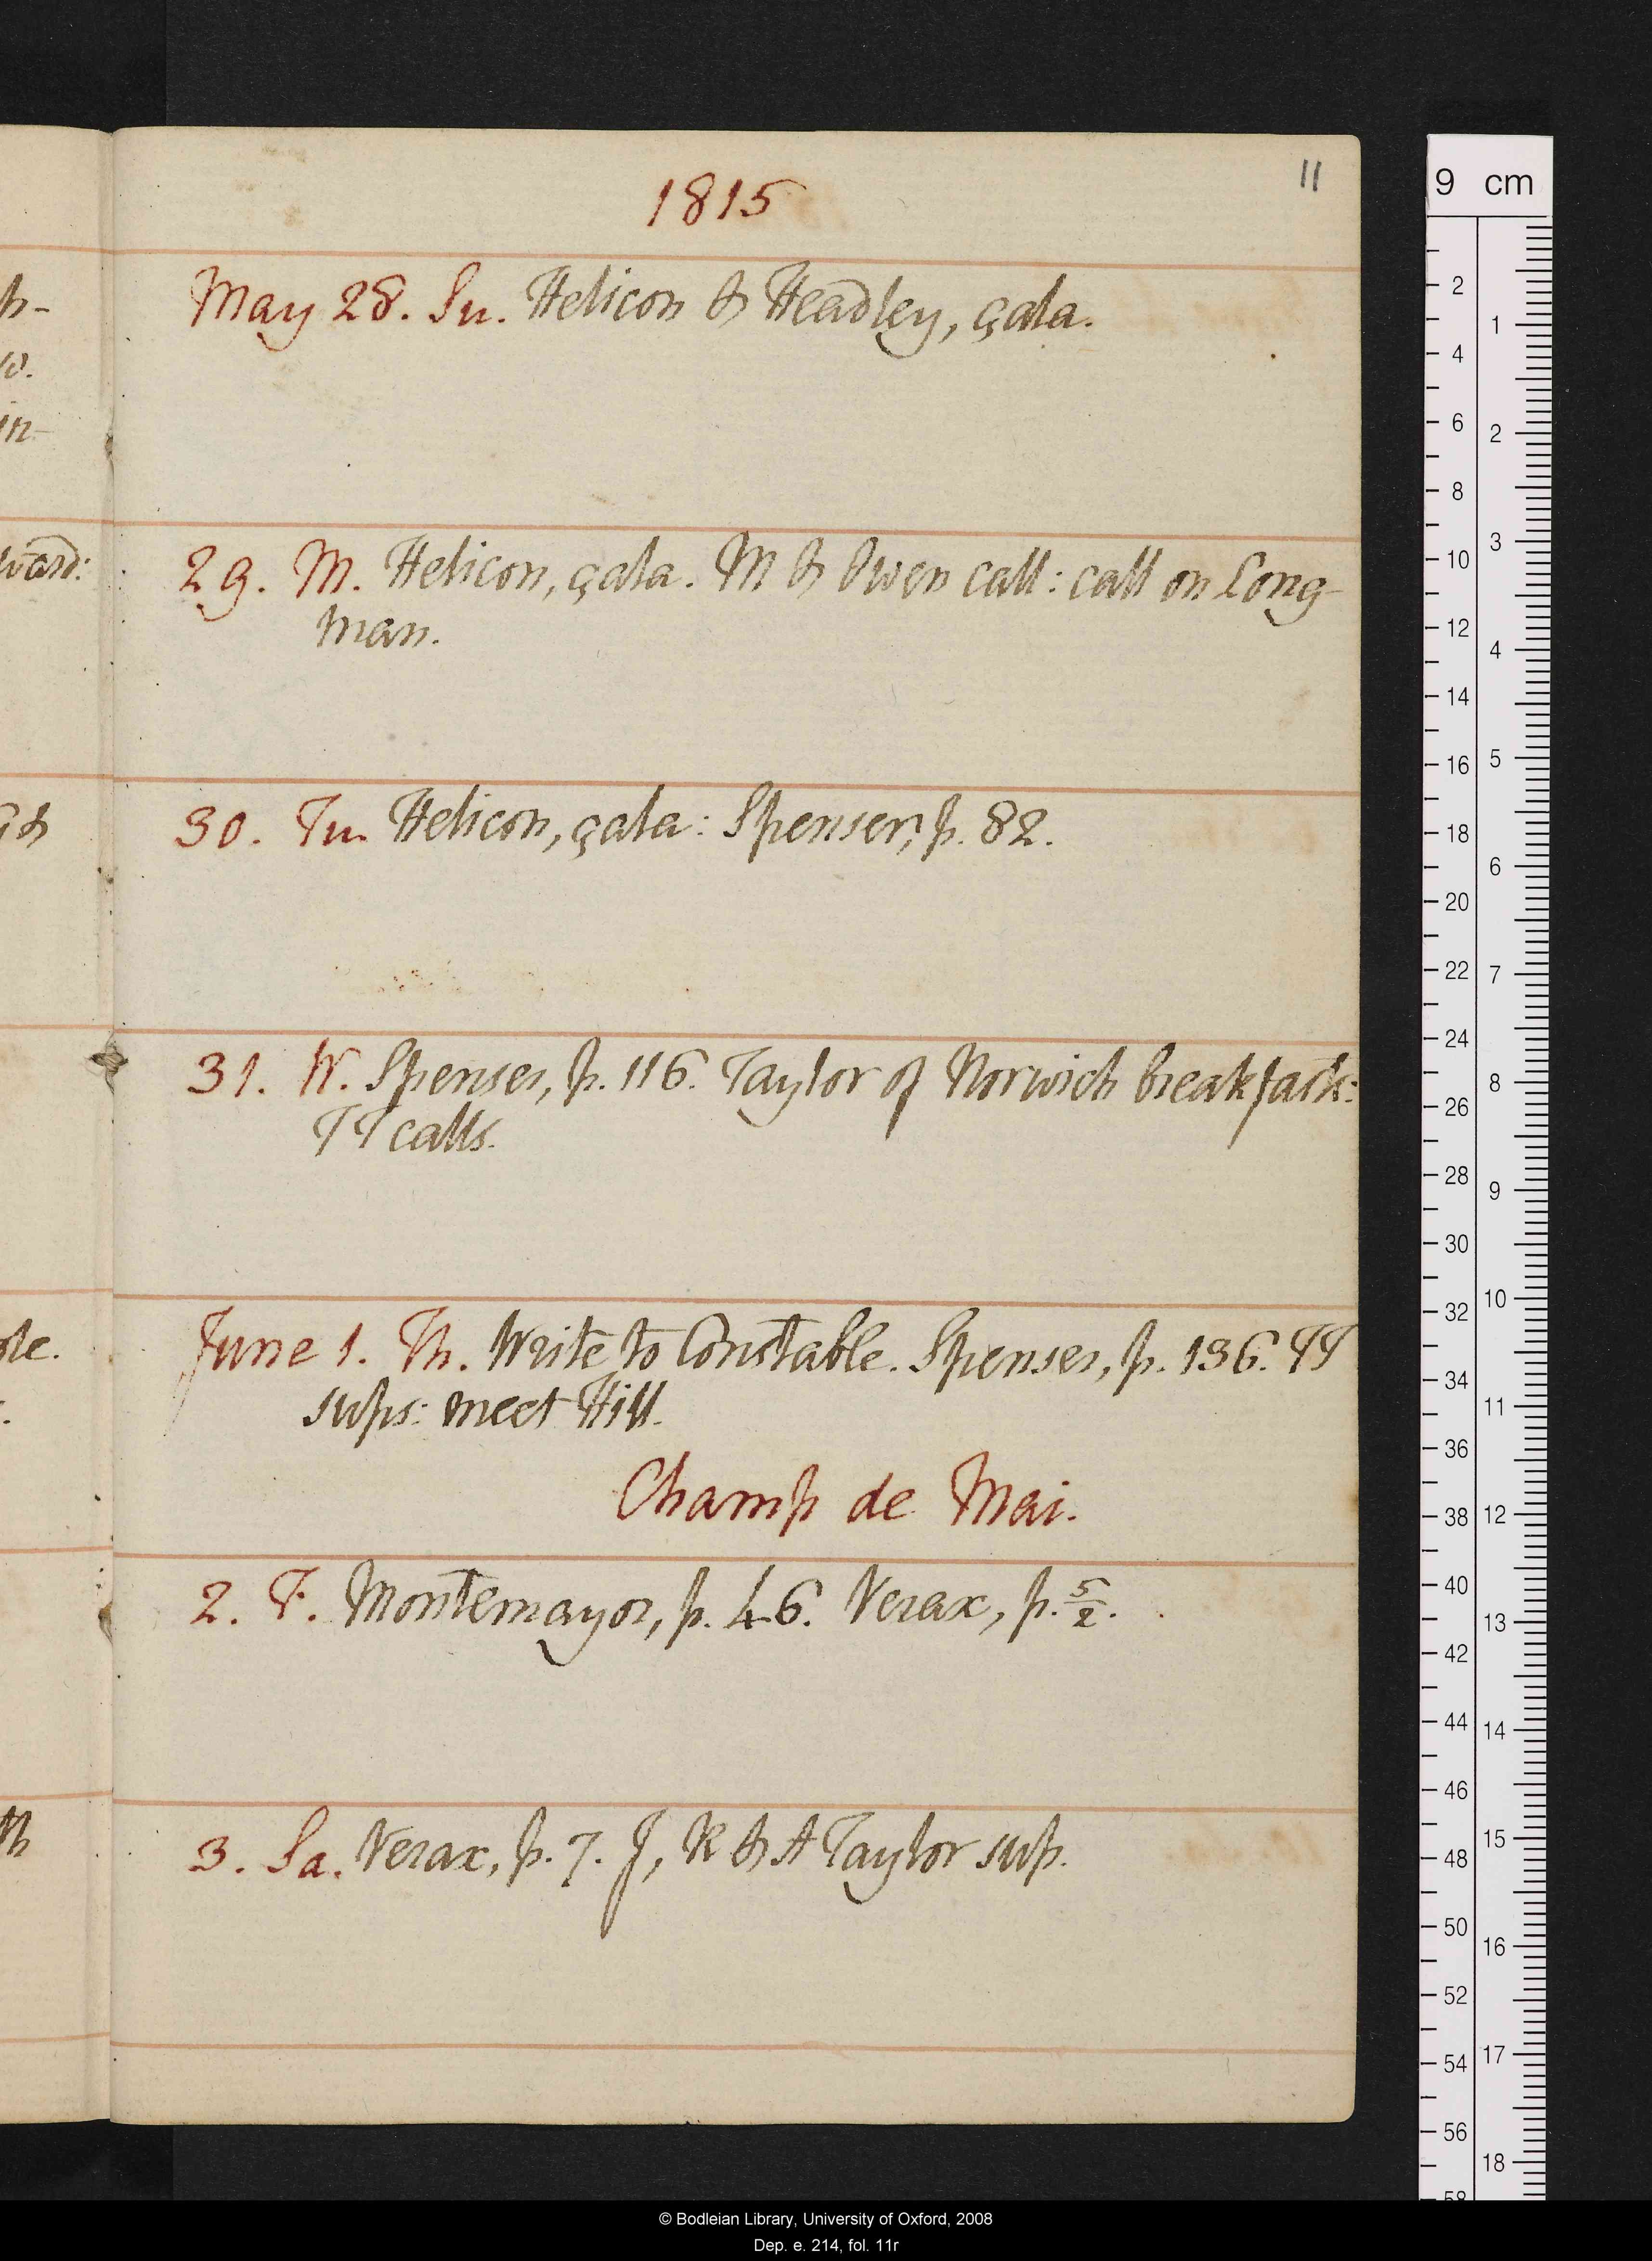 11
1815
May 28. Su. Helicon & Headley, çala.
29. M. Helicon, çala. M & Owen call: call on Long-
man.
30. Tu. Helicon, çala: Spenser, p. 82.
31. W. Spenser, p. 116. Taylor of Norwich breakfasts:
TT calls.
June 1. Th. Write to Constable. Spenser, p. 136. TT
sups: meet Hill.
Champ de Mai.
2. F. Montemayor, p. 46. Verax, p. 5/2.
3. Sa. Verax, p. 7. J, K & A Taylor sup.
9 cm
© Bodleian Library, University of Oxford, 2008
Dep. e. 214, fol. 11r